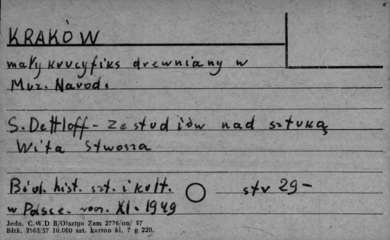 KRAKÓW
mały krucyfiks drewniany w
Muz. Narod.
S. Dettloff - Ze studiów nad sztuką
Wita Stwosza
Biul. hist. szt. i kult. str 29-
w Polsce. rocz. XI - 1949
Jedn. C.W.D B/Olsztyn Zam 2776/on/ 57
Bltk. 2563/57 10.000 szt. karton kl. 7 g 220.